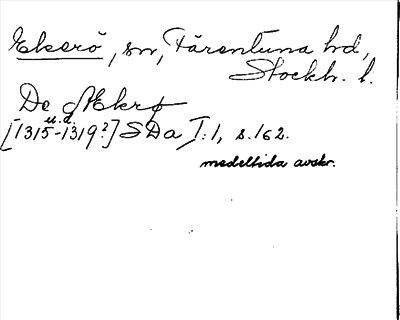 Ekerö, sn, Färentuna hd,
Stockh. l.
De Ekrø
u.d.
[1315-1319?] SDa I:1, s. 162.
medeltida avskr.